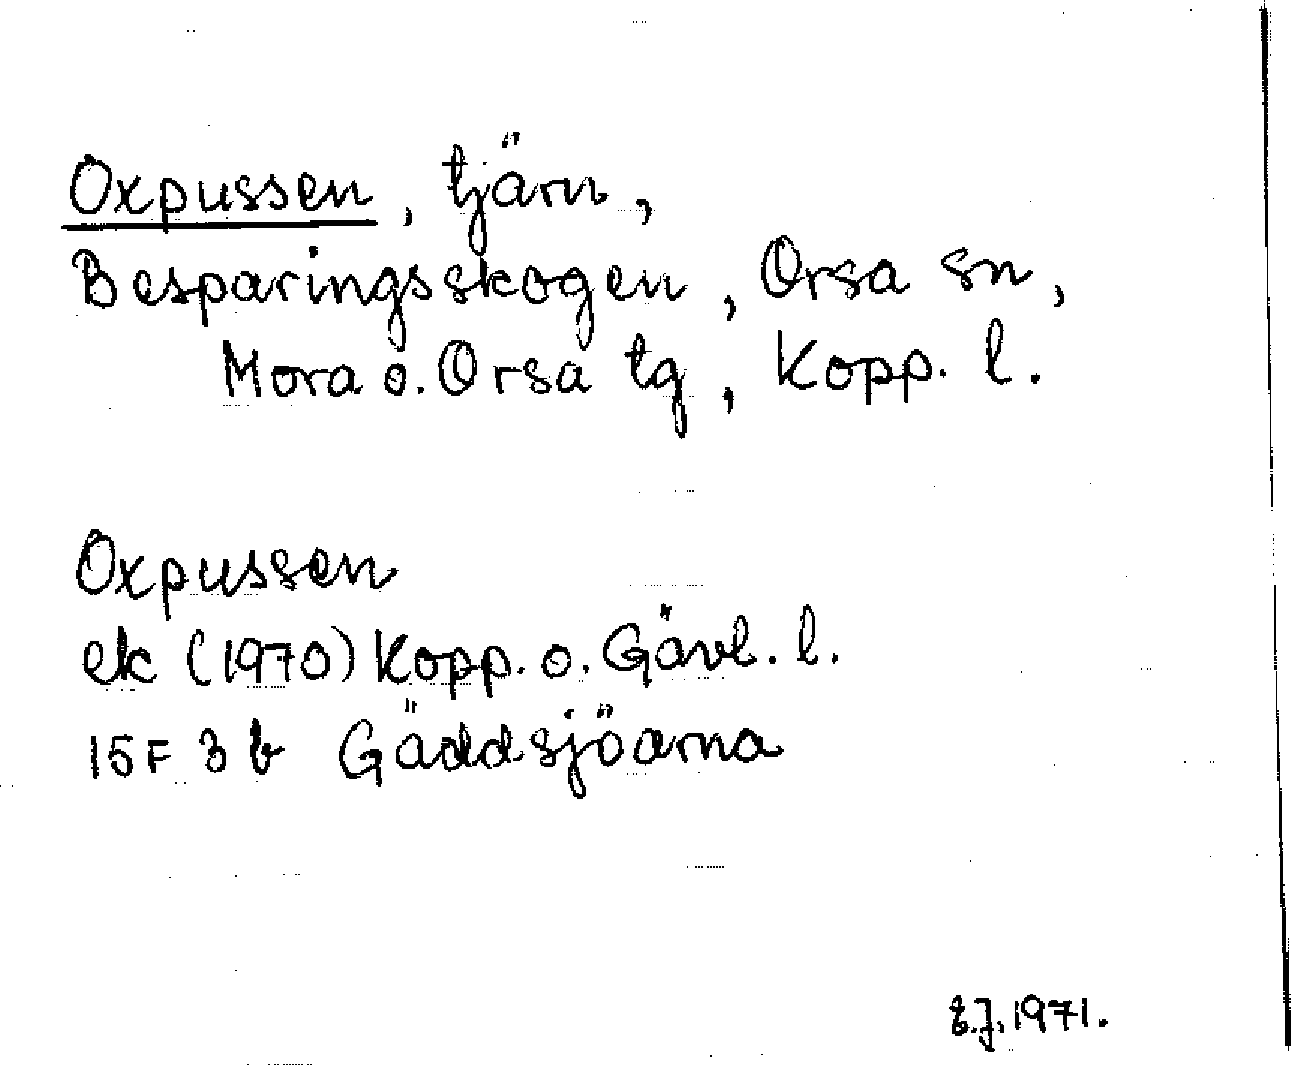 Oxpussen, tjärn,
Besparingsskogen, Orsa sn,
Mora o. Orsa tg, Kopp. l.
Oxpussen
ek (1970) Kopp. o. Gävl. l.
15F 3b Gäddsjöarna
E.J. 1971.